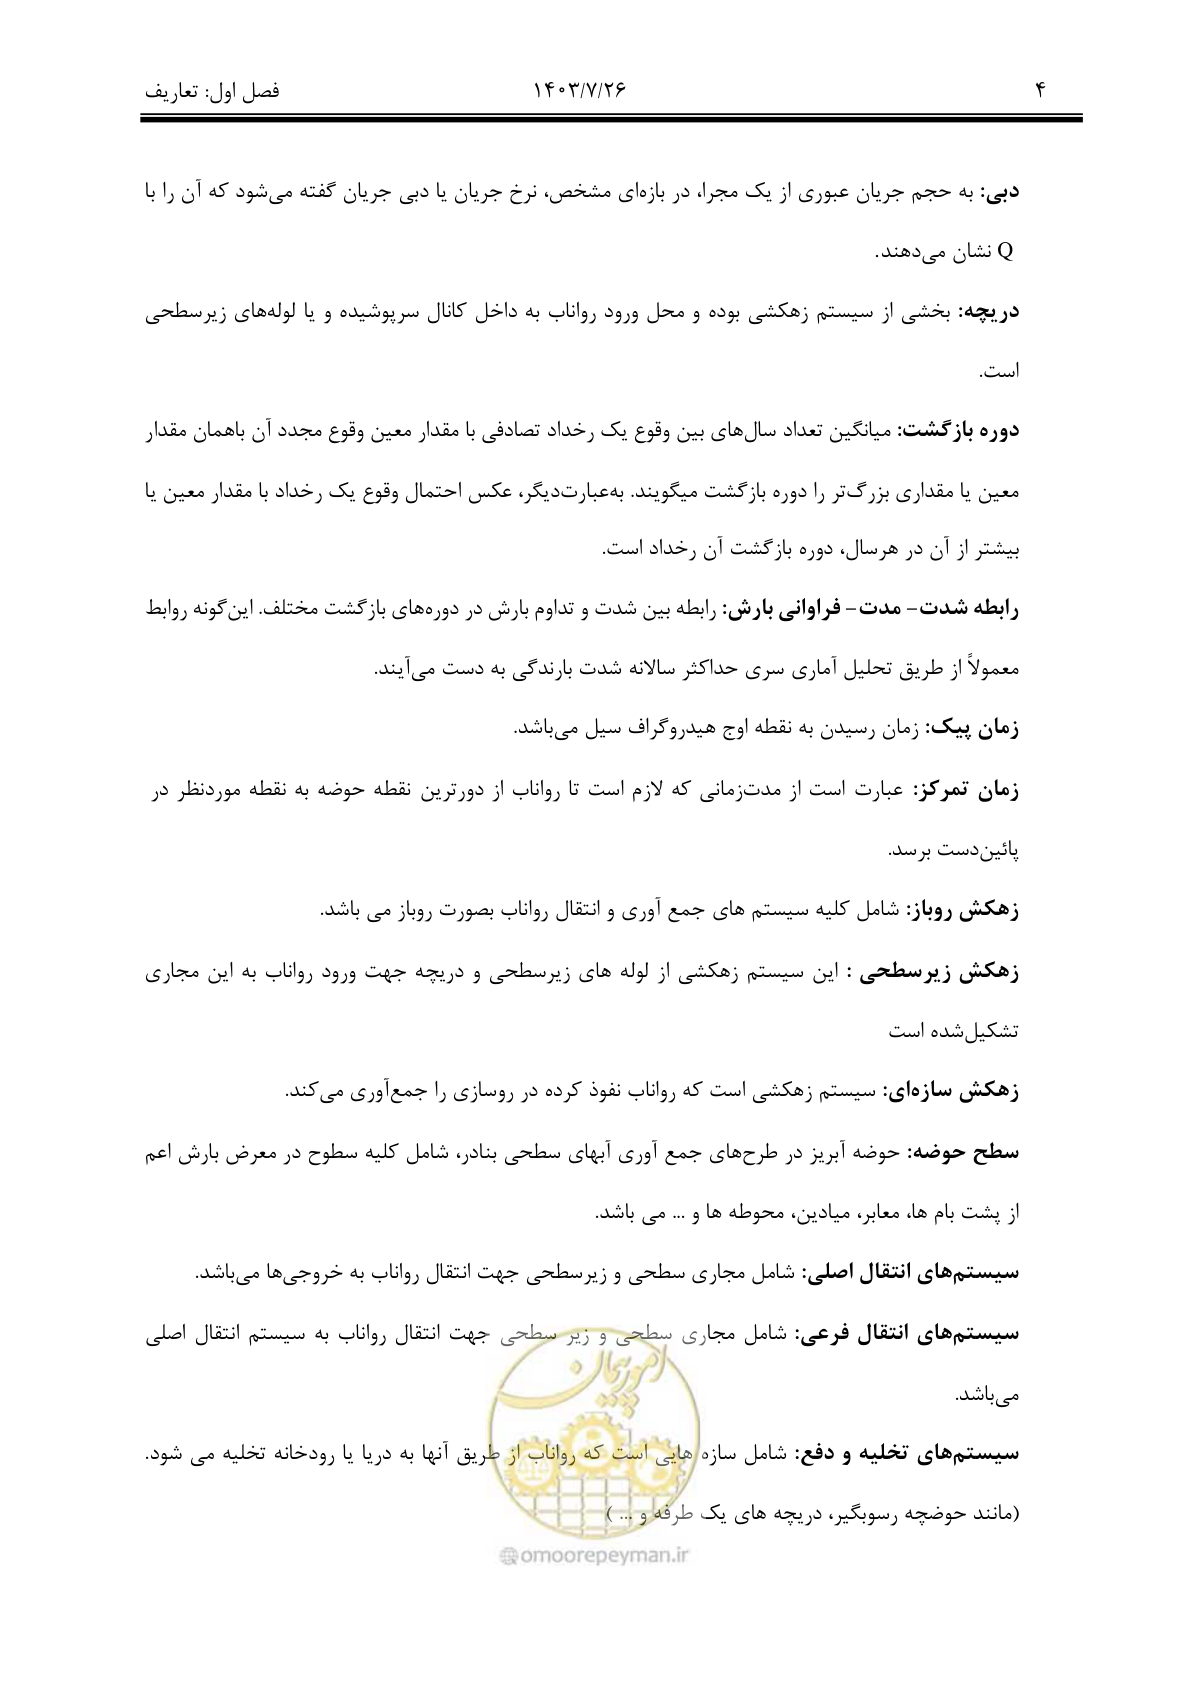 ۴ ۱۴۰۳/۷/۲۶ فصل اول: تعاریف
دبی: به حجم جریان عبوری از یک مجرا، در بازه‌ای مشخص، نرخ جریان یا دبی جریان گفته می‌شود که آن را با
Q نشان می‌دهند.
دریچه: بخشی از سیستم زهکشی بوده و محل ورود رواناب به داخل کانال سرپوشیده و یا لوله‌های زیرسطحی
است.
دوره بازگشت: میانگین تعداد سال‌های بین وقوع یک رخداد تصادفی با مقدار معین وقوع مجدد آن باهمان مقدار
معین یا مقداری بزرگ‌تر را دوره بازگشت میگویند. به‌عبارت‌دیگر، عکس احتمال وقوع یک رخداد با مقدار معین یا
بیشتر از آن در هرسال، دوره بازگشت آن رخداد است.
رابطه شدت- مدت- فراوانی بارش: رابطه بین شدت و تداوم بارش در دوره‌های بازگشت مختلف. این‌گونه روابط
معمولاً از طریق تحلیل آماری سری حداکثر سالانه شدت بارندگی به دست می‌آیند.
زمان پیک: زمان رسیدن به نقطه اوج هیدروگراف سیل می‌باشد.
زمان تمرکز: عبارت است از مدت‌زمانی که لازم است تا رواناب از دورترین نقطه حوضه به نقطه موردنظر در
پائین‌دست برسد.
زهکش روباز: شامل کلیه سیستم های جمع آوری و انتقال رواناب بصورت روباز می باشد.
زهکش زیرسطحی : این سیستم زهکشی از لوله های زیرسطحی و دریچه جهت ورود رواناب به این مجاری
تشکیل‌شده است
زهکش سازه‌ای: سیستم زهکشی است که رواناب نفوذ کرده در روسازی را جمع‌آوری می‌کند.
سطح حوضه: حوضه آبریز در طرح‌های جمع آوری آبهای سطحی بنادر، شامل کلیه سطوح در معرض بارش اعم
از پشت بام ها، معابر، میادین، محوطه ها و ... می باشد.
سیستم‌های انتقال اصلی: شامل مجاری سطحی و زیرسطحی جهت انتقال رواناب به خروجی‌ها می‌باشد.
سیستم‌های انتقال فرعی: شامل مجاری سطحی و زیر سطحی جهت انتقال رواناب به سیستم انتقال اصلی
می‌باشد.
سیستم‌های تخلیه و دفع: شامل سازه هایی است که رواناب از طریق آنها به دریا یا رودخانه تخلیه می شود.
(مانند حوضچه رسوبگیر، دریچه های یک طرفه و ... )
امور پیمان
@omoorepeyman.ir